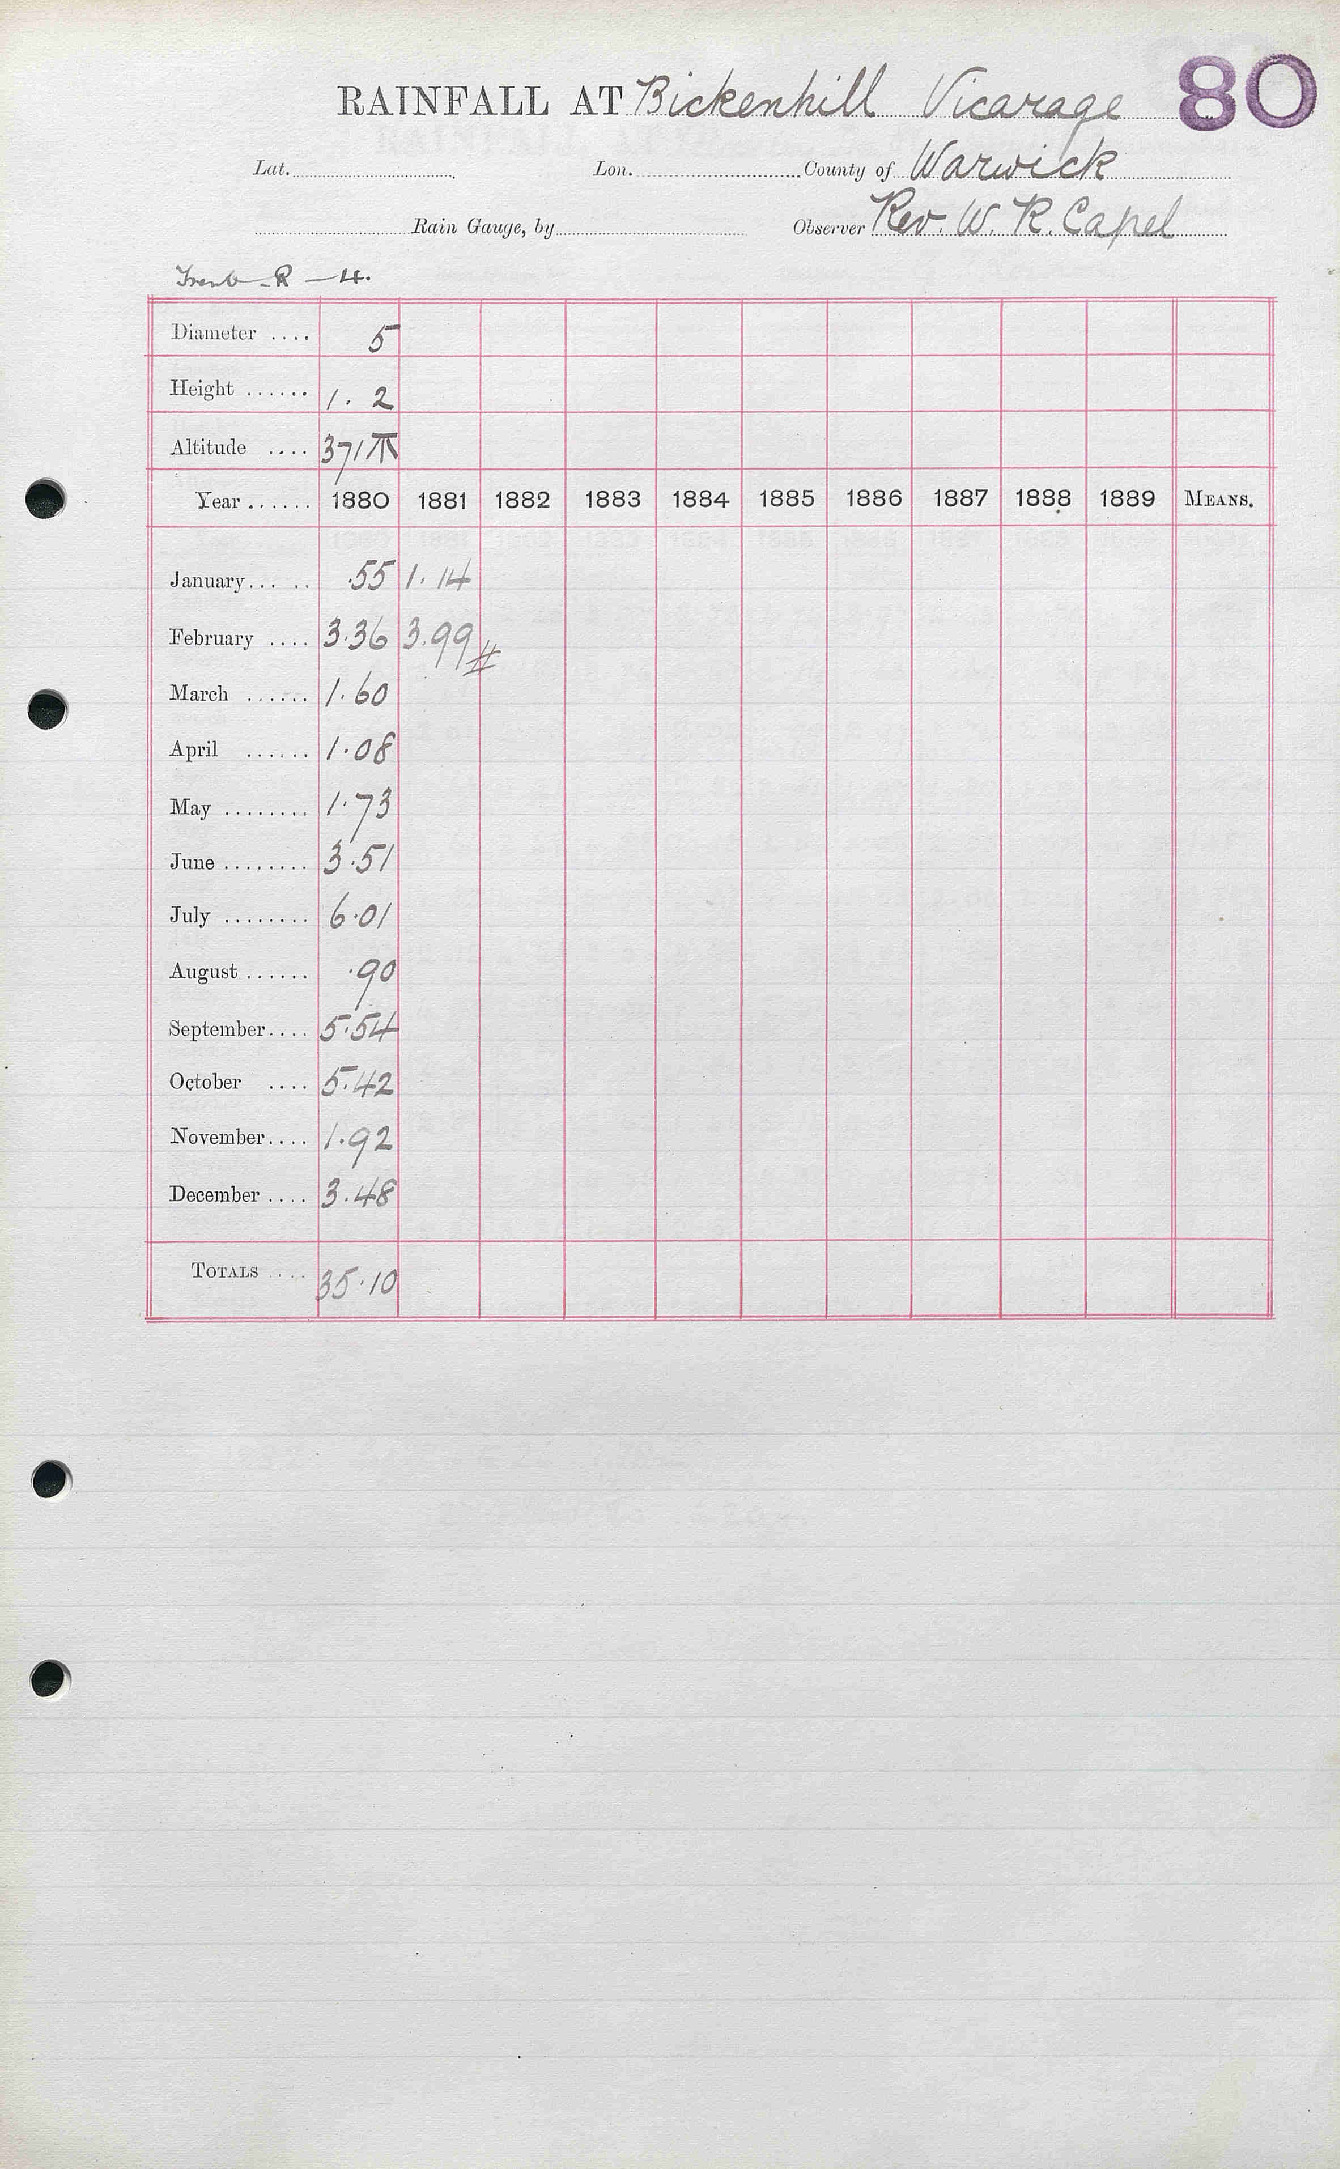 80
RAINFALL AT Bickenhill Vicarage
Lat. Lon. County of Warwick
Rain Gauge, by Observer Rev. W. R. Capel
Trent R — 4.
Diameter .... 5
Height ...... 1. 2
Altitude .... 371
Year ...... 1880 1881 1882 1883 1884 1885 1886 1887 1888 1889 MEANS.
January ..... .55 1.14
February .... 3.36 3.99
March ...... 1.60
April ...... 1.08
May ........ 1.73
June ........ 3.51
July ........ 6.01
August ...... .90
September.... 5.54
October .... 5.42
November.... 1.92
December .... 3.48
TOTALS .... 35.10